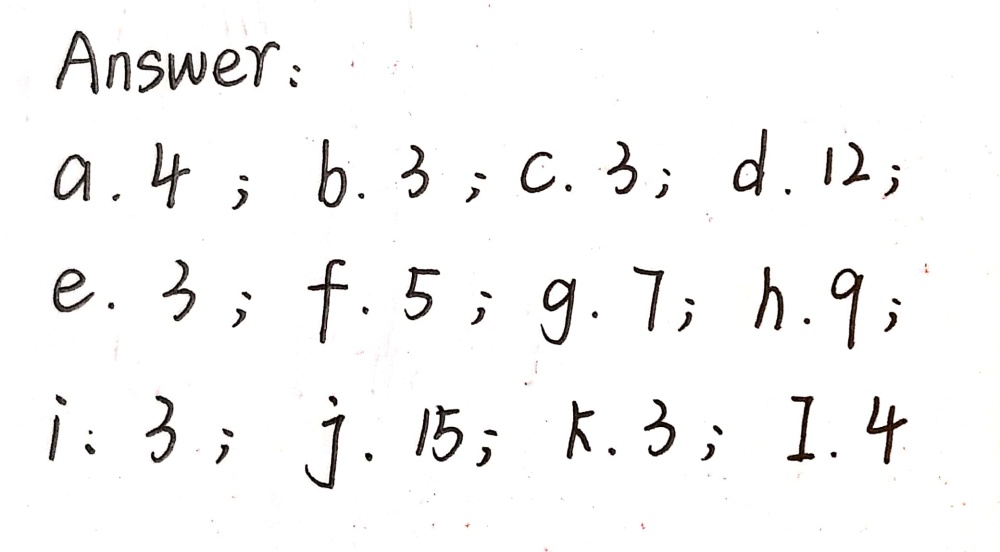 Answer:
a. 4 ; b. 3 ; c. 3; d. 12;
e. 3 ; f. 5 ; g. 7; h. 9;
i: 3 ; j. 15; k. 3; I. 4